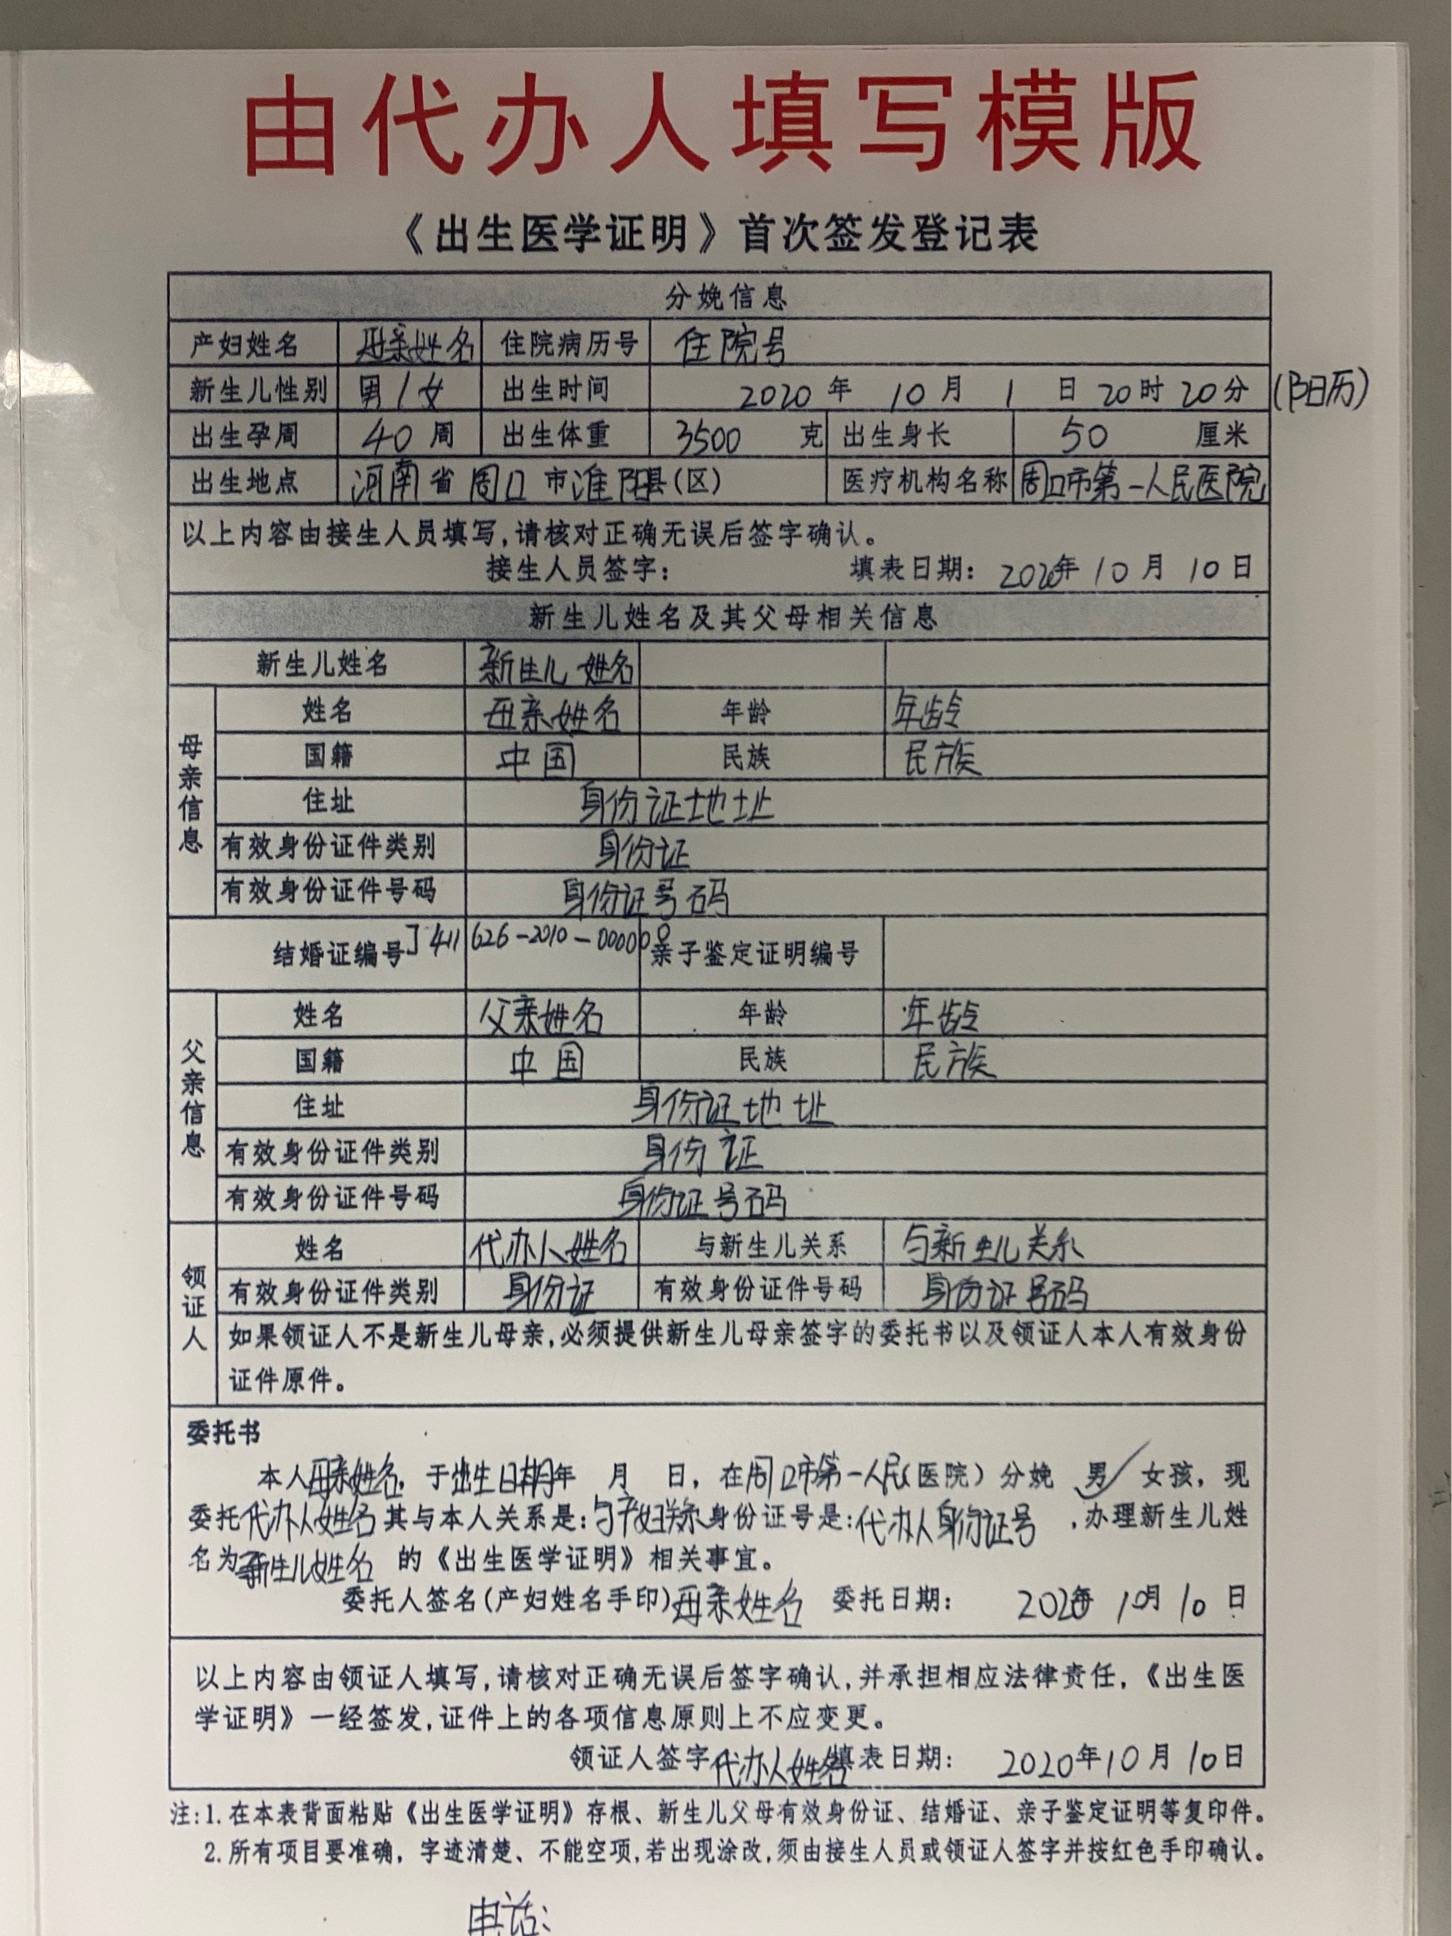 由代办人填写模版
《出生医学证明》首次签发登记表
分娩信息
产妇姓名 母亲姓名 住院病历号 住院号
新生儿性别 男/女 出生时间 2020年 10月 1日 20时20分 (阳历)
出生孕周 40周 出生体重 3500克 出生身长 50厘米
出生地点 河南省周口市淮阳县(区) 医疗机构名称 周口市第一人民医院
以上内容由接生人员填写,请核对正确无误后签字确认。
接生人员签字: 填表日期: 2020年10月10日
新生儿姓名及其父母相关信息
新生儿姓名 新生儿姓名
母亲信息
姓名 母亲姓名 年龄 年龄
国籍 中国 民族 民族
住址 身份证地址
有效身份证件类别 身份证
有效身份证件号码 身份证号码
结婚证编号 J411626-2010-000008 亲子鉴定证明编号
父亲信息
姓名 父亲姓名 年龄 年龄
国籍 中国 民族 民族
住址 身份证地址
有效身份证件类别 身份证
有效身份证件号码 身份证号码
领证人
姓名 代办人姓名 与新生儿关系 与新生儿关系
有效身份证件类别 身份证 有效身份证件号码 身份证号码
如果领证人不是新生儿母亲,必须提供新生儿母亲签字的委托书以及领证人本人有效身份
证件原件。
委托书
本人母亲姓名, 于出生日期年 月 日, 在周口市第一人民(医院)分娩 男✓女孩, 现
委托代办人姓名其与本人关系是:与产妇关系身份证号是:代办人身份证号 ,办理新生儿姓
名为新生儿姓名 的《出生医学证明》相关事宜。
委托人签名(产妇姓名手印)母亲姓名 委托日期: 2020年10月10日
以上内容由领证人填写,请核对正确无误后签字确认,并承担相应法律责任, 《出生医
学证明》一经签发,证件上的各项信息原则上不应变更。
领证人签字代办人姓名填表日期: 2020年10月10日
注:1.在本表背面粘贴《出生医学证明》存根、新生儿父母有效身份证、结婚证、亲子鉴定证明等复印件。
2.所有项目要准确, 字迹清楚、不能空项,若出现涂改,须由接生人员或领证人签字并按红色手印确认。
电话: